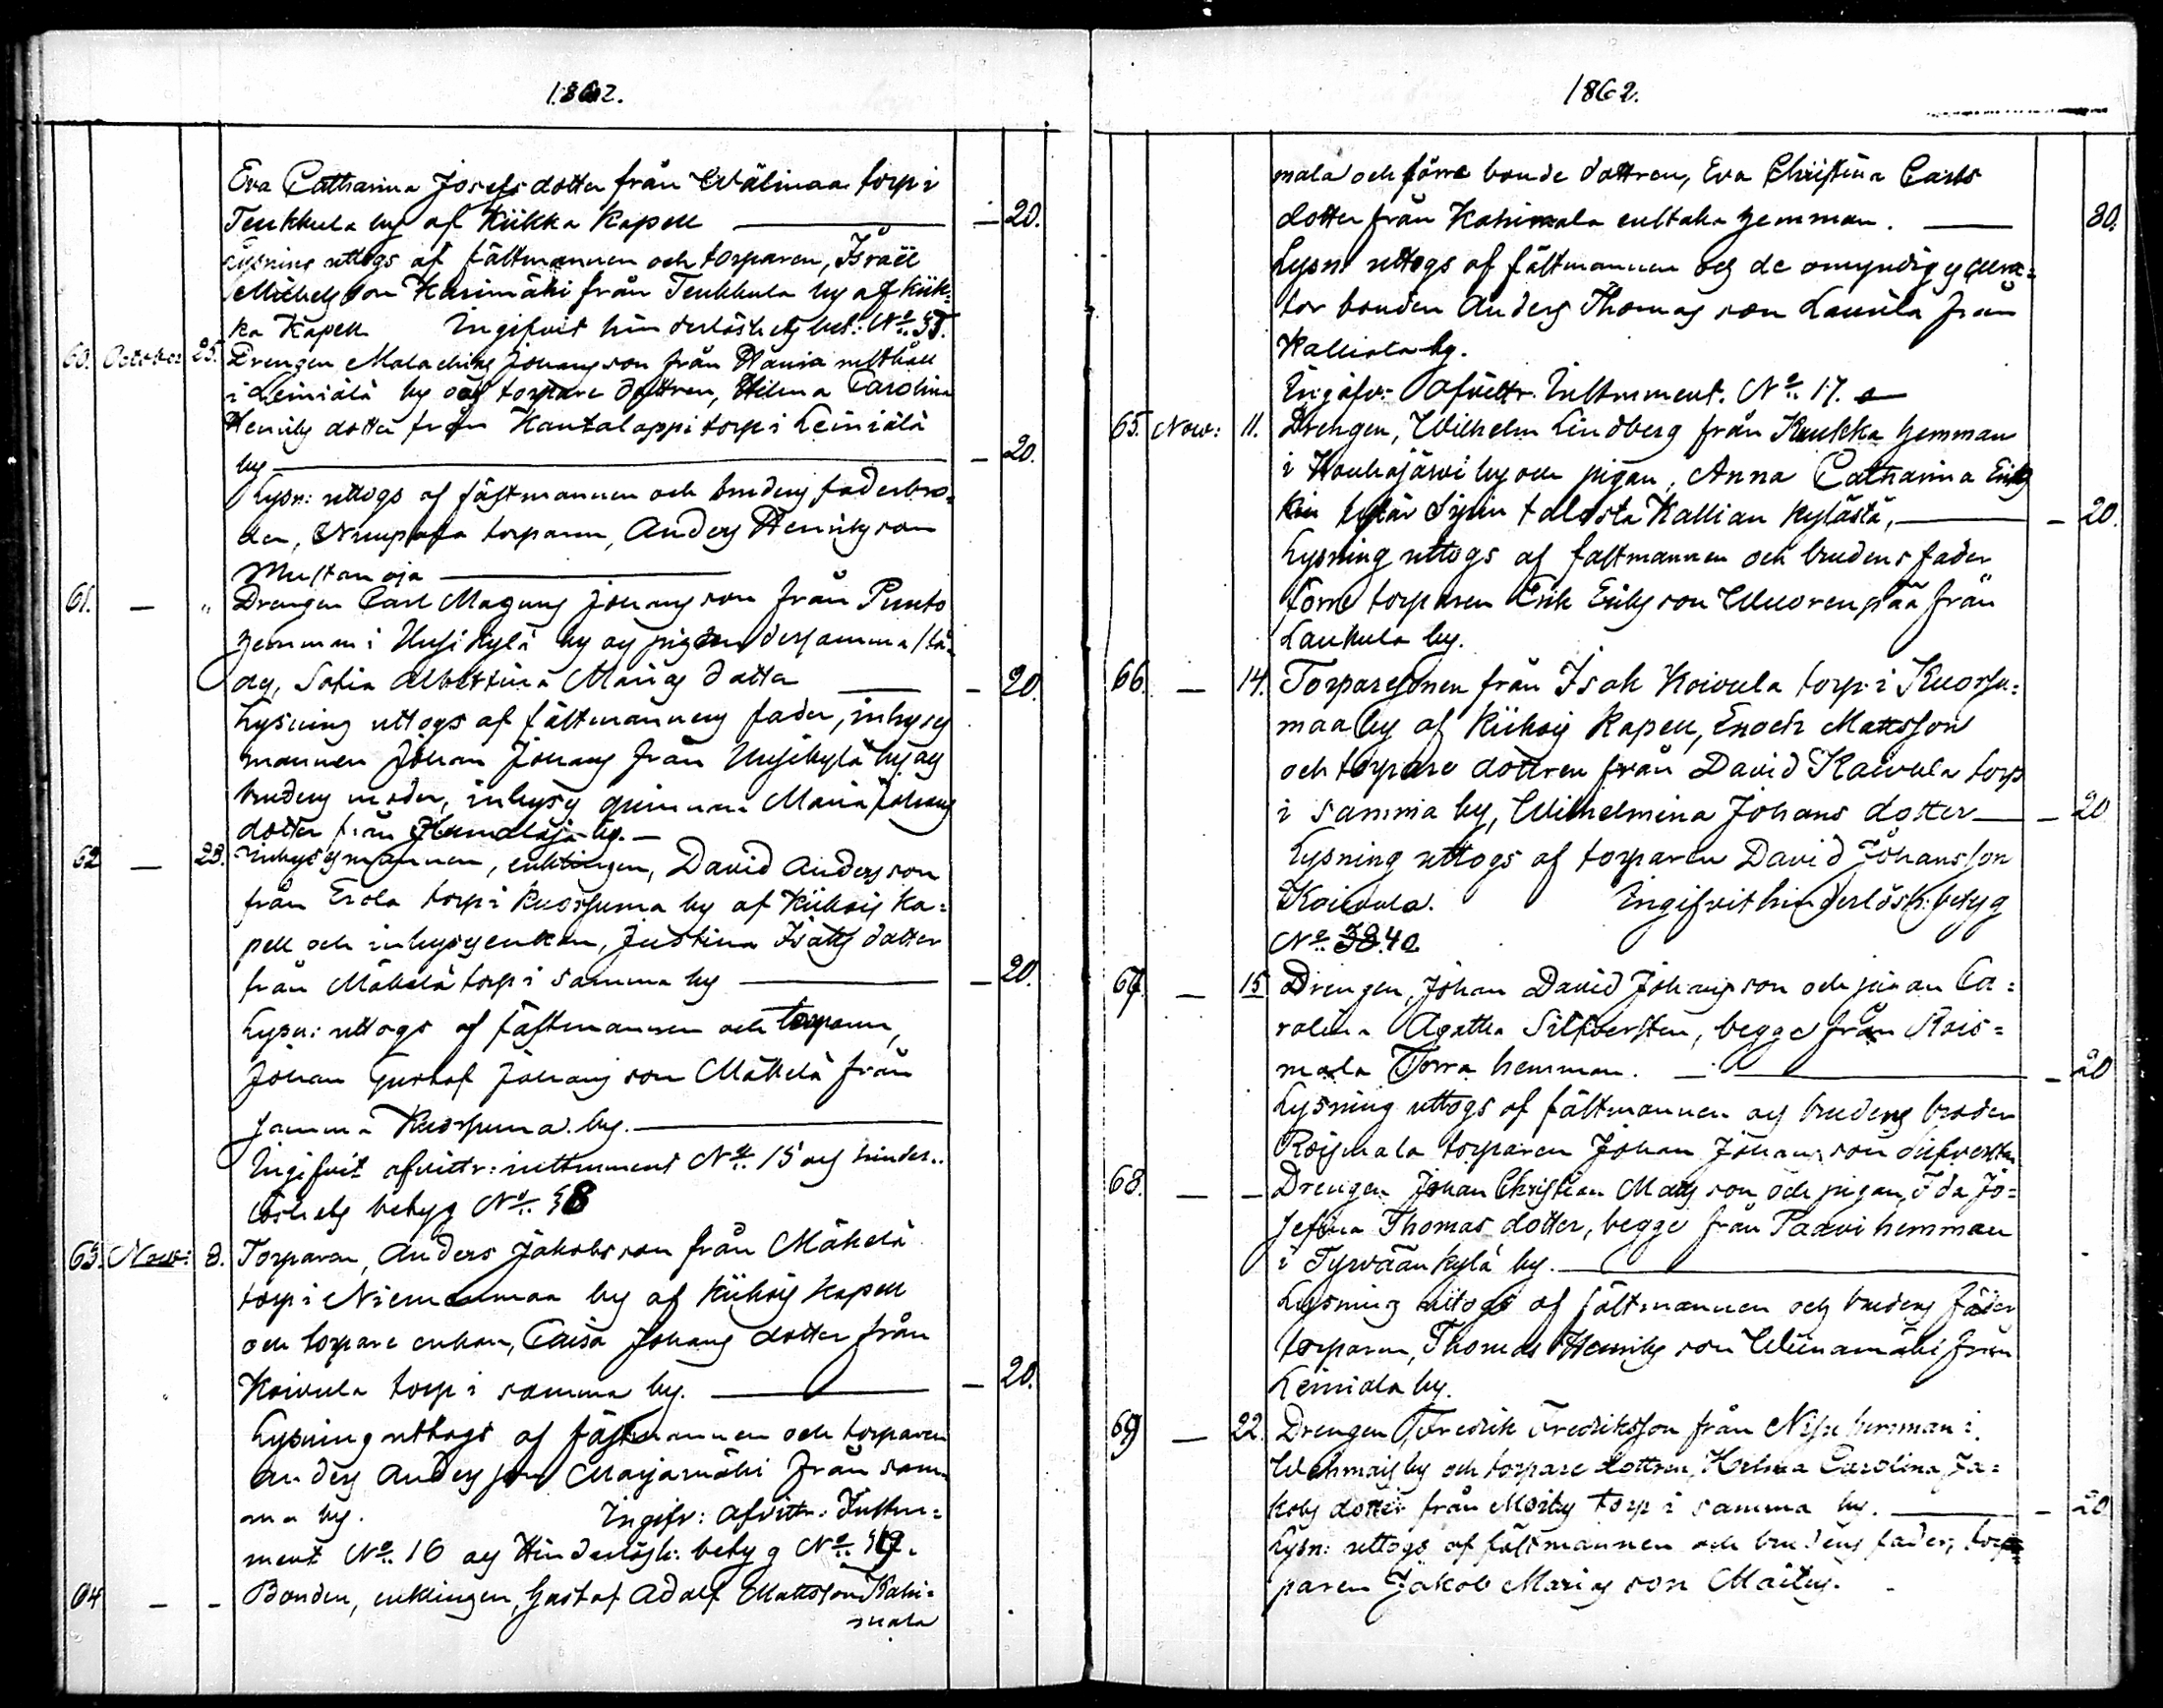 1862.
Eva Catharina Josefs dotter från Wälimaa torp i
Teukkula by af Kiikka Kapell — — 20.
Lysning uttogs af fästmannen och torparen, Israel
Michelsson Kasimäki från Teukkula by af Kiik-
ka Kapell Ingifvit hinderlöshets bet: No 37.
60. October 25. Drengen Malachias Johansson från Hänia rusthåll
i Leiniälä by och torpare dottren, Hilma Carolina
Henriks dotter från Kantalappi torp i Leiniälä
by — — 20.
Lysn: uttogs af fästmannen och brudens faderbro-
der, torparen, Anders Henriksson
Mustanoja —
61. — " Drengen Carl Magnus Johansson från Punto
hemman i Uusikylä by och pigan dersamma stä-
des, Sofia Albertina Mariæ dotter — — 20.
Lysning uttogs af fästmannens fader, inhyses
mannen Johan Johans från Uusikylä by och
brudens moder, inhyses qvinnan Maria Johans
dotter från Humaloja by. —
62 — 28. Inhysesmannen, enklingen, David Andersson
från Erola torp i Kuorsuma by af Kiikois Ka=
pell och inhysesenkan, Justina Isaks dotter
från Mäkelä torp i samma by — — 20.
Lysn: uttogs af fästmannen och torparen,
Johan Gustaf Johansson Mäkelä från
samma Kuorsuma by. —
Ingifvit afvittr: instrument No 15 och hinder-
löshets betyg No 38
63. Nov: 8. Torparen, Anders Jakobsson från Mäkelä
torp i Niemenmaa by af Kiikois Kapell
och torpare enkan, Caisa Johans dotter från
Koivula torp i samma by. — — 20.
Lysning uttogs af fästmannen och torparen
Anders Andersson Marjamäki från sam-
ma by. Ingifv: afvittr: Instru=
ment No 16 och Hinderlösh: betyg No 39.
64 — - Bonden, enklingen, Gustaf Adolf Mattsson Kahi=
mala
1862.
mala och förre bonde dottren, Eva Christina Carls
dotter från Kahimala eultaka hemman. — 30.
Lysn: uttogs af fästmannen och de omyndiges qura=
tor bonden Anders Thomasson Laurila från
Kalliala by.
Ingifv: Afvittr. Instrument. No 17.
65. Nov: 11. Drengen, Wilhelm Lindberg från Kaukka hemman
i Houhajärvi by och pigan, Anna Catharina Erik
kin tytär Sipin talosta Kallian kylästä, — — 20.
Lysning uttogs af fästmannen och brudens fader
förre torparen Erik Eriksson Wuorenpää från
Laukula by.
66. — 14. Torparesonen från Isak Koivula torp i Kuorsu=
maa by af Kiikois Kapell, Enoch Mattsson
och torpare dottren från David Koivula torp
i samma by, Wilhelmina Johans dotter — — 20
Lysning uttogs af torparen David Johansson
Koivula. Ingifvit hinderlösh: betyg
No 38.40
67. — 15 Drengen, Johan David Johansson och pigan Ca=
rolina Agatha Silfversten, begge från Rois=
mala Torra hemman. — — 20
Lysning uttogs af fästmannen och brudens broder
Roismala torparen Johan Johansson Silfversten
68. — - Drengen Johan Christian Matsson och pigan, Ida Jo=
sefina Thomas dotter, begge från Paavi hemman
i Tyrväänkylä by. —
Lysning uttogs af fästmannen och brudens fader
torparen, Thomas Henriksson Wiinamäki från
Leiniälä by.
69 — 22. Drengen, Fredrik Fredriksson från Nisu hemman i
Wehmais by och torpare dottren, Helena Carolina Ja=
kobs dotter från Moisy torp i samma by. — — 20
Lysn: uttogs af fästmannen och brudens fader, tor=
paren Jakob Mariæson